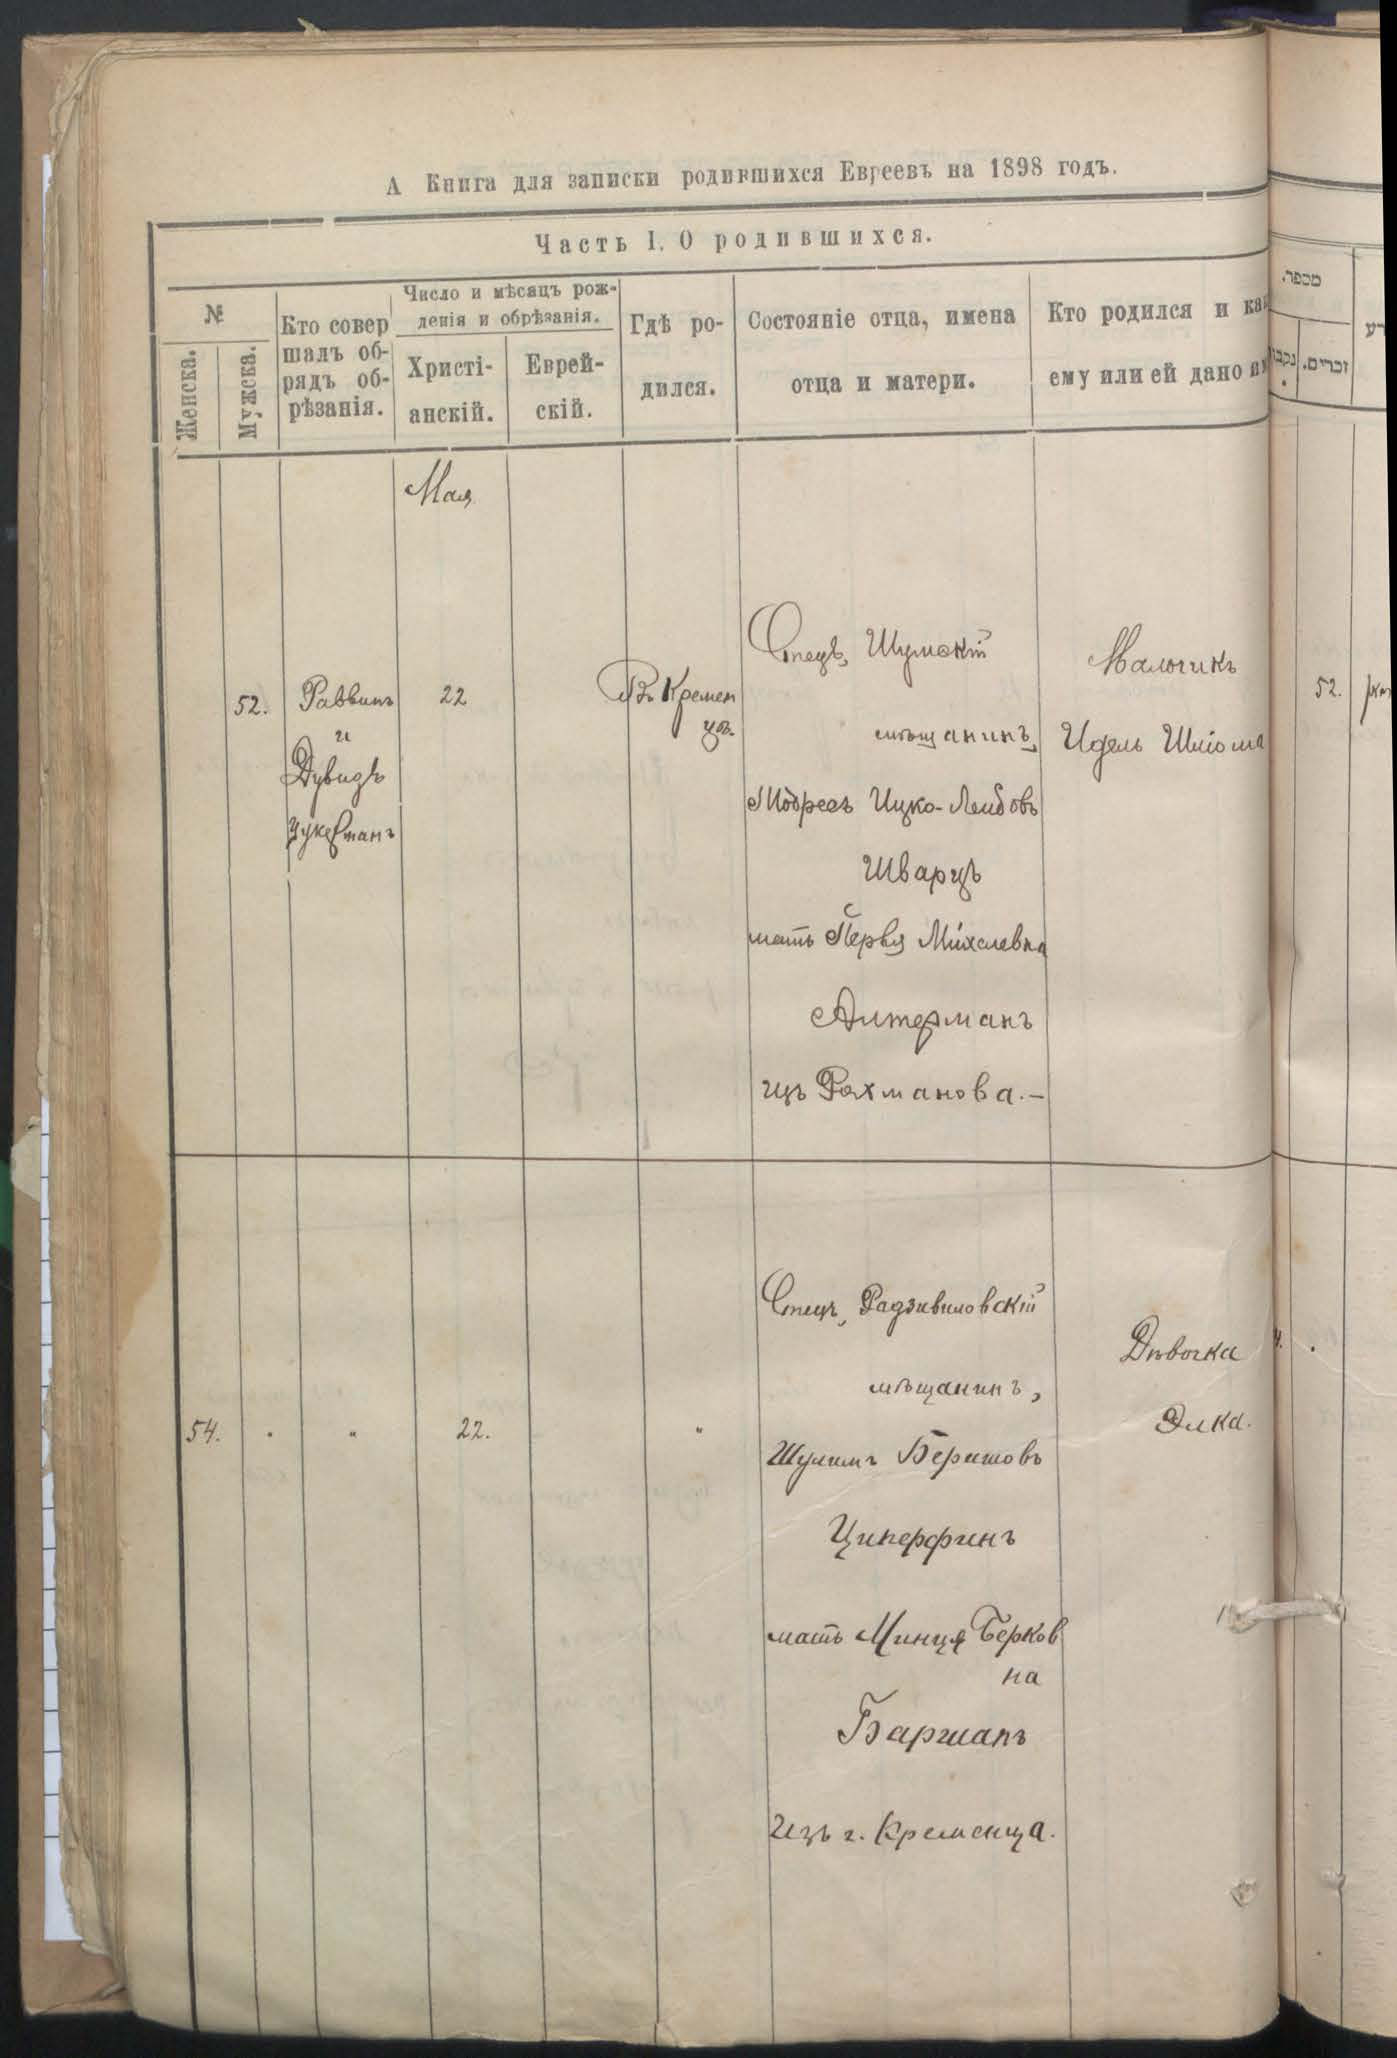 А Книга для записки родившихся Евреевъ на 1898 годъ.
Часть I. О родившихся.
№
Женска.
Мужска.
Кто совер
шалъ об-
рядъ об-
рѣзанія.
Число и мѣсяцъ рож-
денія и обрѣзанія.
Христі-
анскій.
Еврей-
скій.
Гдѣ ро-
дился.
Состояніе отца, имена
отца и матери.
Кто родился и как
ему или ей дано им
מספר.
זכרים.
נקבו
Мая
52.
Раввинъ
и
Дувидъ
Цукерманъ
22
Въ Кремен
цѣ.
Отецъ, Шумскій
мѣщанинъ,
Мойсей Ицко-Лейбовъ
Шварцъ
мать Перля Михелевна
Алтерманъ
изъ Рахманова.-
Мальчикъ
Идель Шліома
52.
54.
"
22.
"
Отецъ, Радзивиловскій
мѣщанинъ,
Шулимъ Беришовъ
Циперфинъ
мать Минця Берков
на
Баршапъ
Изъ г. Кременца.
Дѣвочка
Элка.